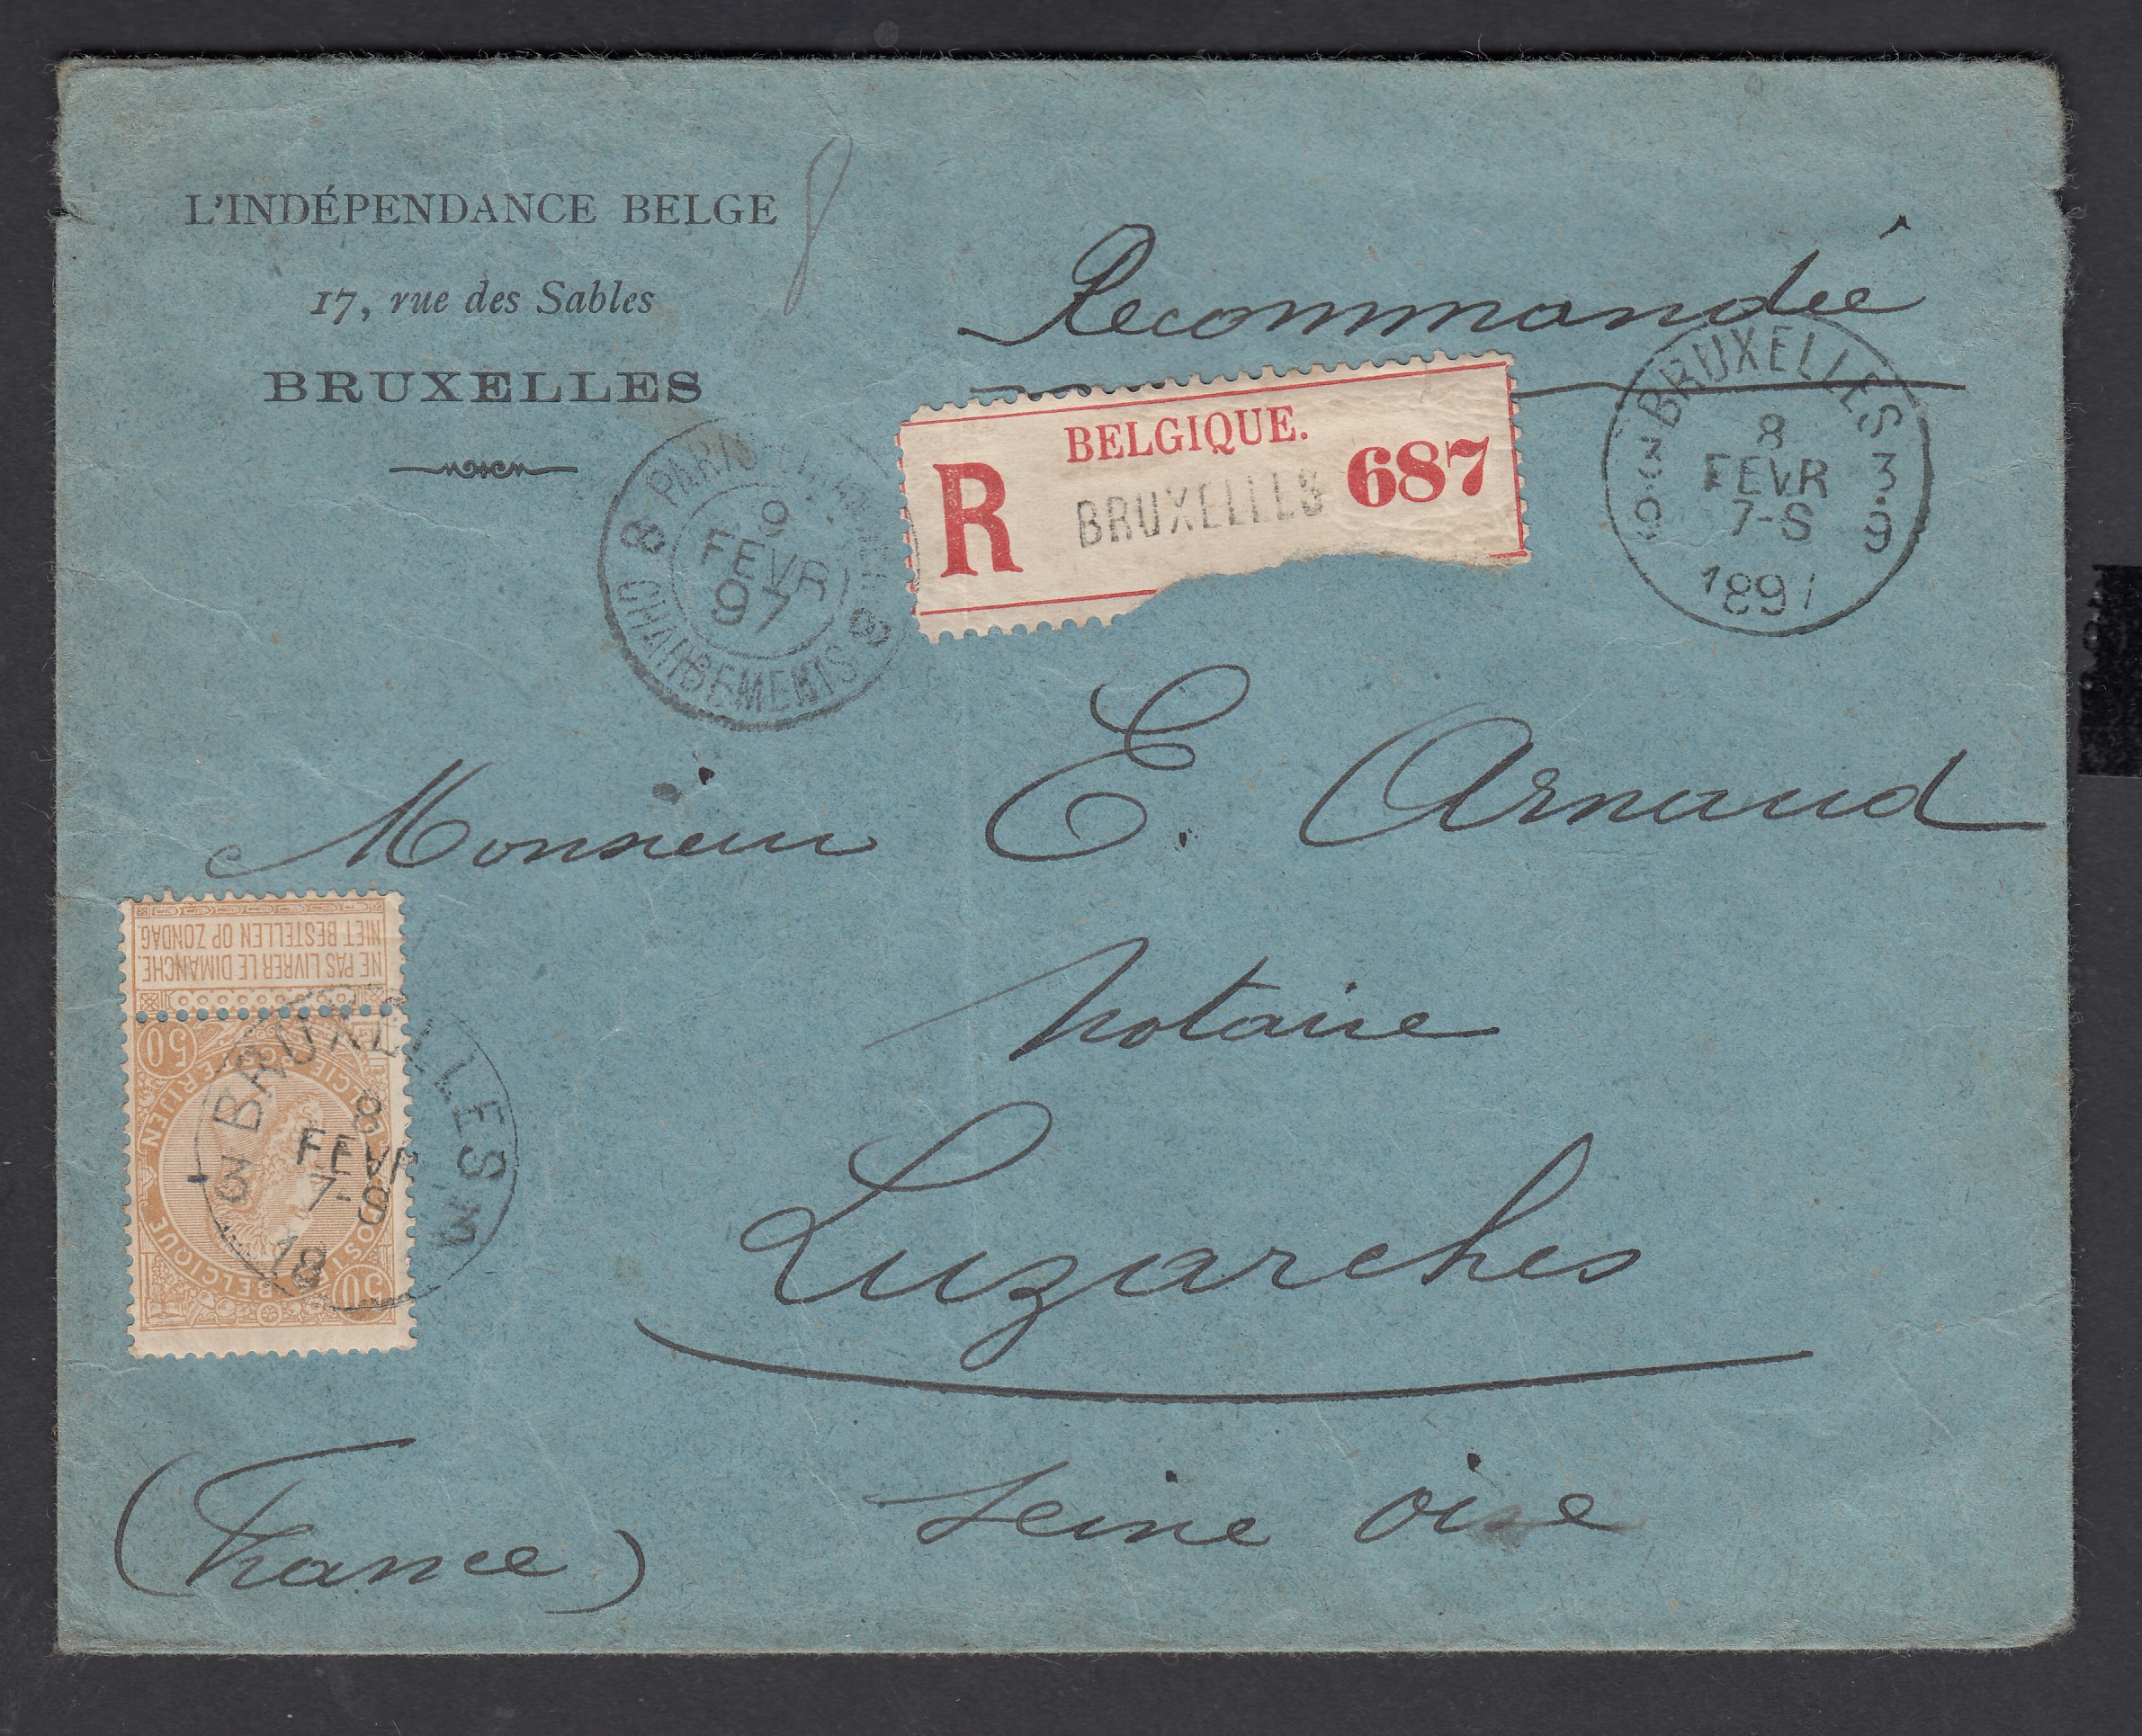 L'INDÉPENDANCE BELGE
17, rue des Sables
BRUXELLES
Recommandée
BELGIQUE.
R BRUXELLES 687
BRUXELLES
8
FEVR
7-S
1897
PARIS
9
FEVR
97
CHARGEMENTS
Monsieur E. Arnaud
Notaire
Luzarches
Seine Oise
(France)
NE PAS LIVRER LE DIMANCHE.
NIET BESTELLEN OP ZONDAG.
50 50
BELGIQUE
BRUXELLES
8
FEVR
7-8
18